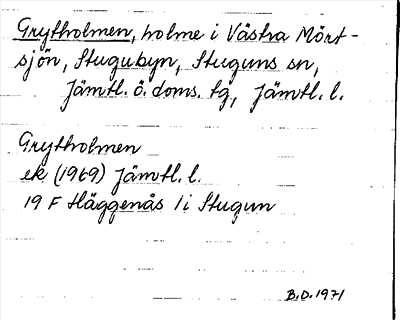 Grytholmen, holme i Västra Mört-
sjön, Stugubyn, Stuguns sn,
Jämtl. ö. doms. tg, Jämtl. l.
Grytholmen
ek (1969) Jämtl. l.
19 F Häggenås 1i Stugun
B.D. 1971